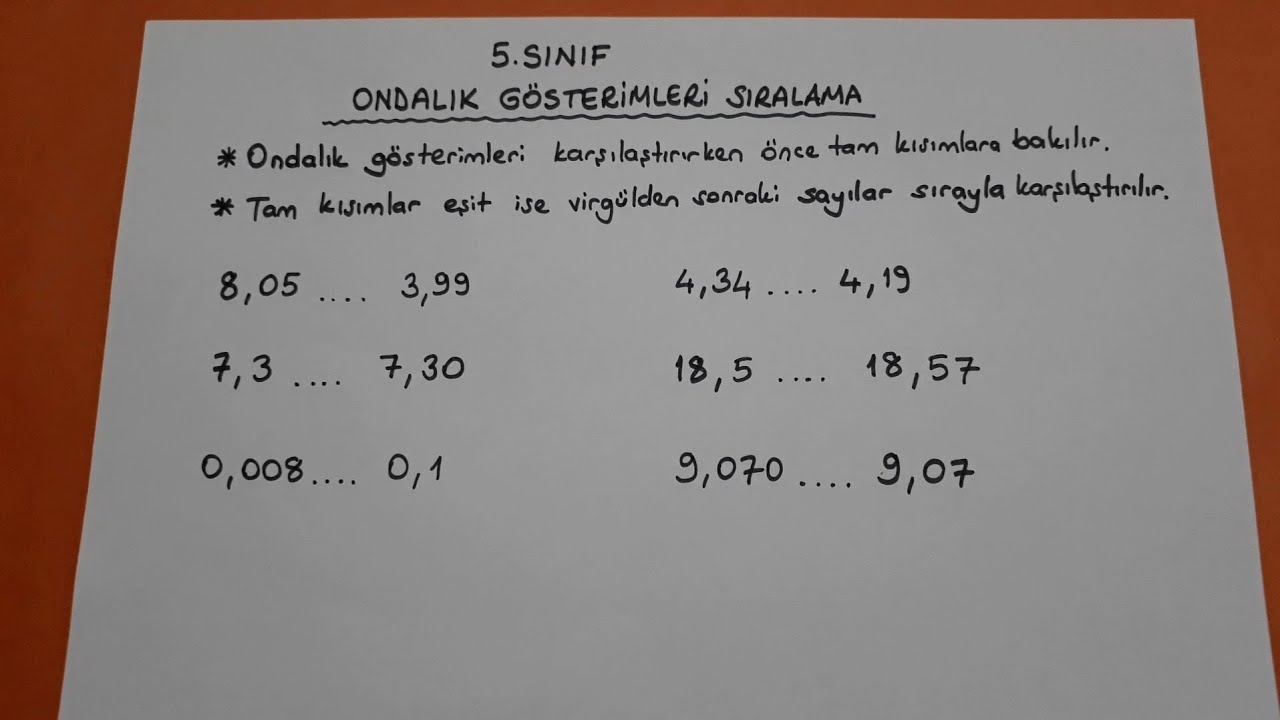 5.SINIF
ONDALIK GÖSTERİMLERİ SIRALAMA
* Ondalık gösterimleri karşılaştırırken önce tam kısımlara bakılır.
* Tam kısımlar eşit ise virgülden sonraki sayılar sırayla karşılaştırılır.
8,05 .... 3,99 4,34 .... 4,19
7,3 .... 7,30 18,5 .... 18,57
0,008 .... 0,1 9,070 .... 9,07